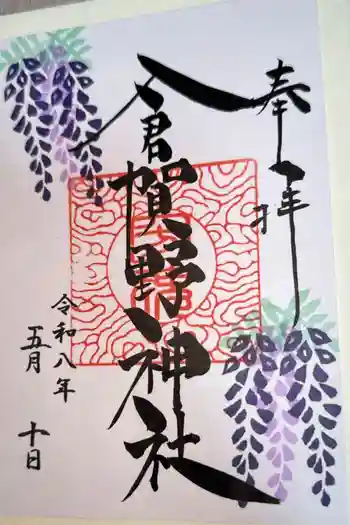 奉拝
倉賀野神社
令和八年
五月 十日